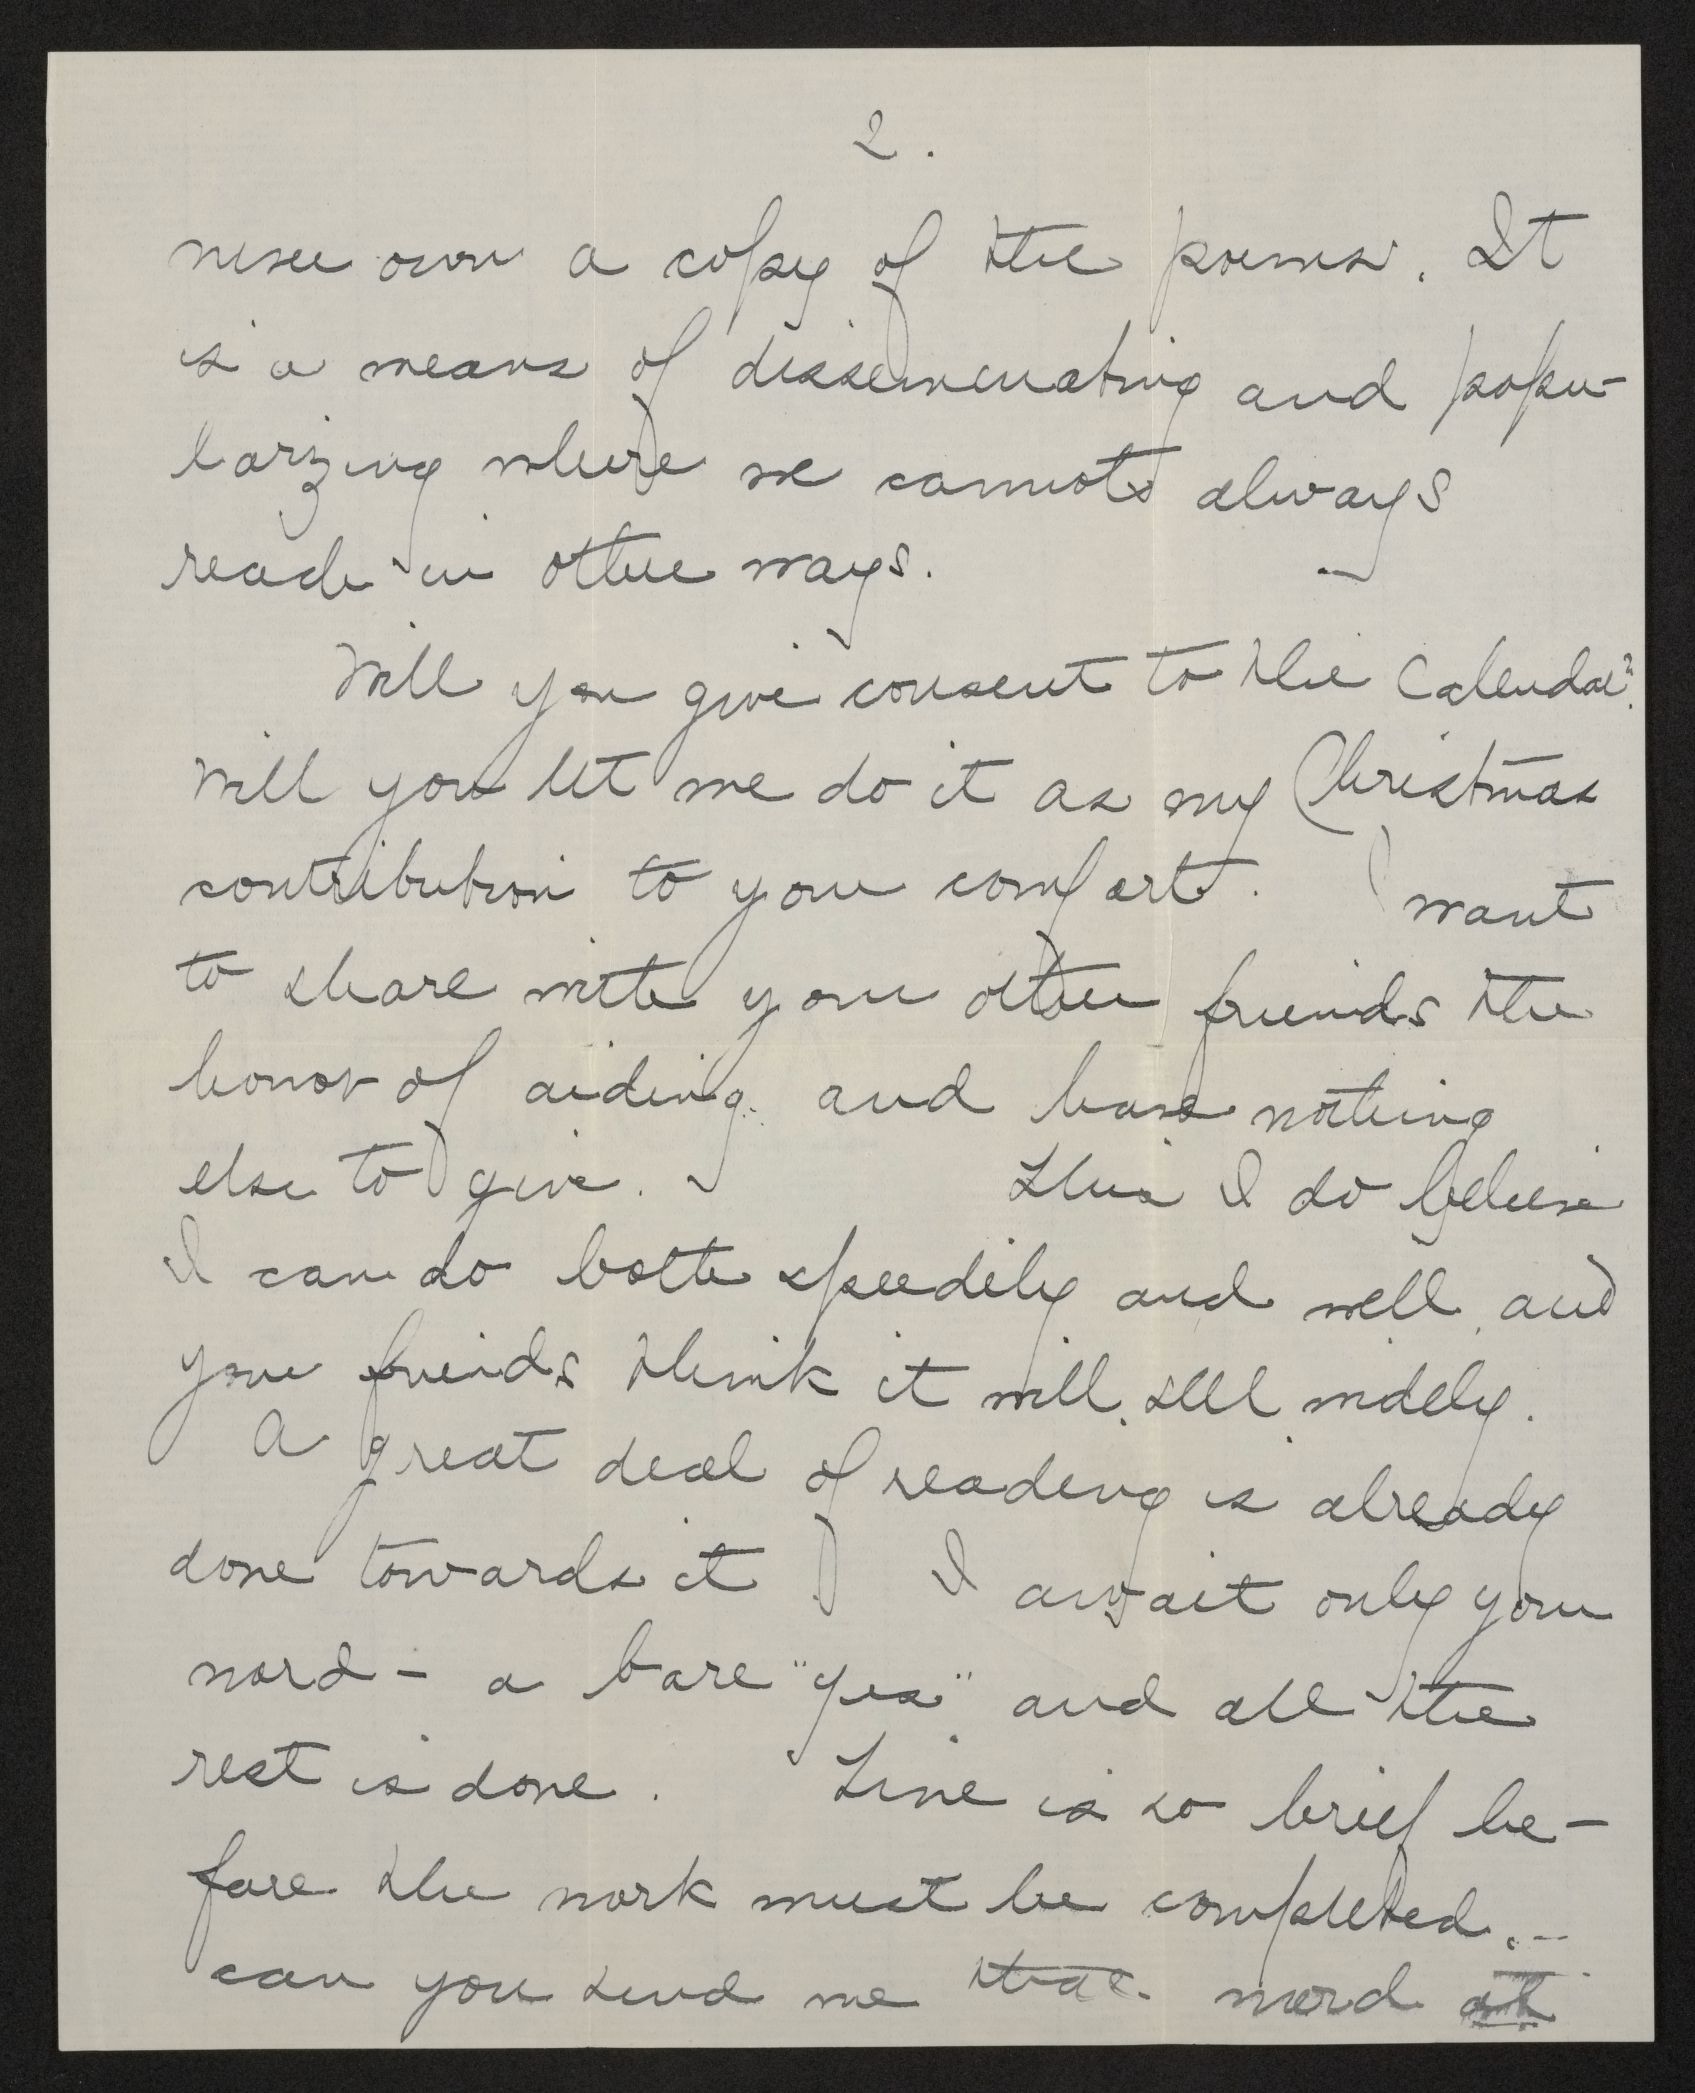 2.
never own a copy of the poems. It
is a means of disseminating and popu-
larizing where we cannot always
reach in other ways.
Will you give consent to the Calendar?
Will you let me do it as my Christmas
contribution to your comfort. I want
to share with your other friends the
honor of aiding. and have nothing
else to give. This I do believe
I can do both speedily and well, and
your friends think it will sell widely.
A great deal of reading is already
done towards it I await only your
word - a bare "yes" and all the
rest is done. Time is so brief be-
fore the work must be completed. -
can you send me that word at